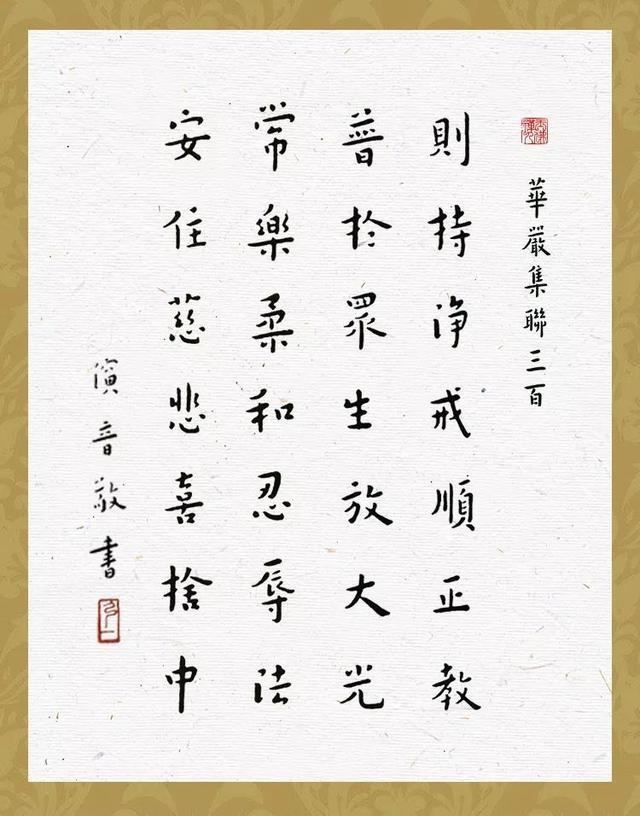 華嚴集聯三百
則持净戒順正教
普於眾生放大光
常樂柔和忍辱法
安住慈悲喜捨中
演音敬書
弘一